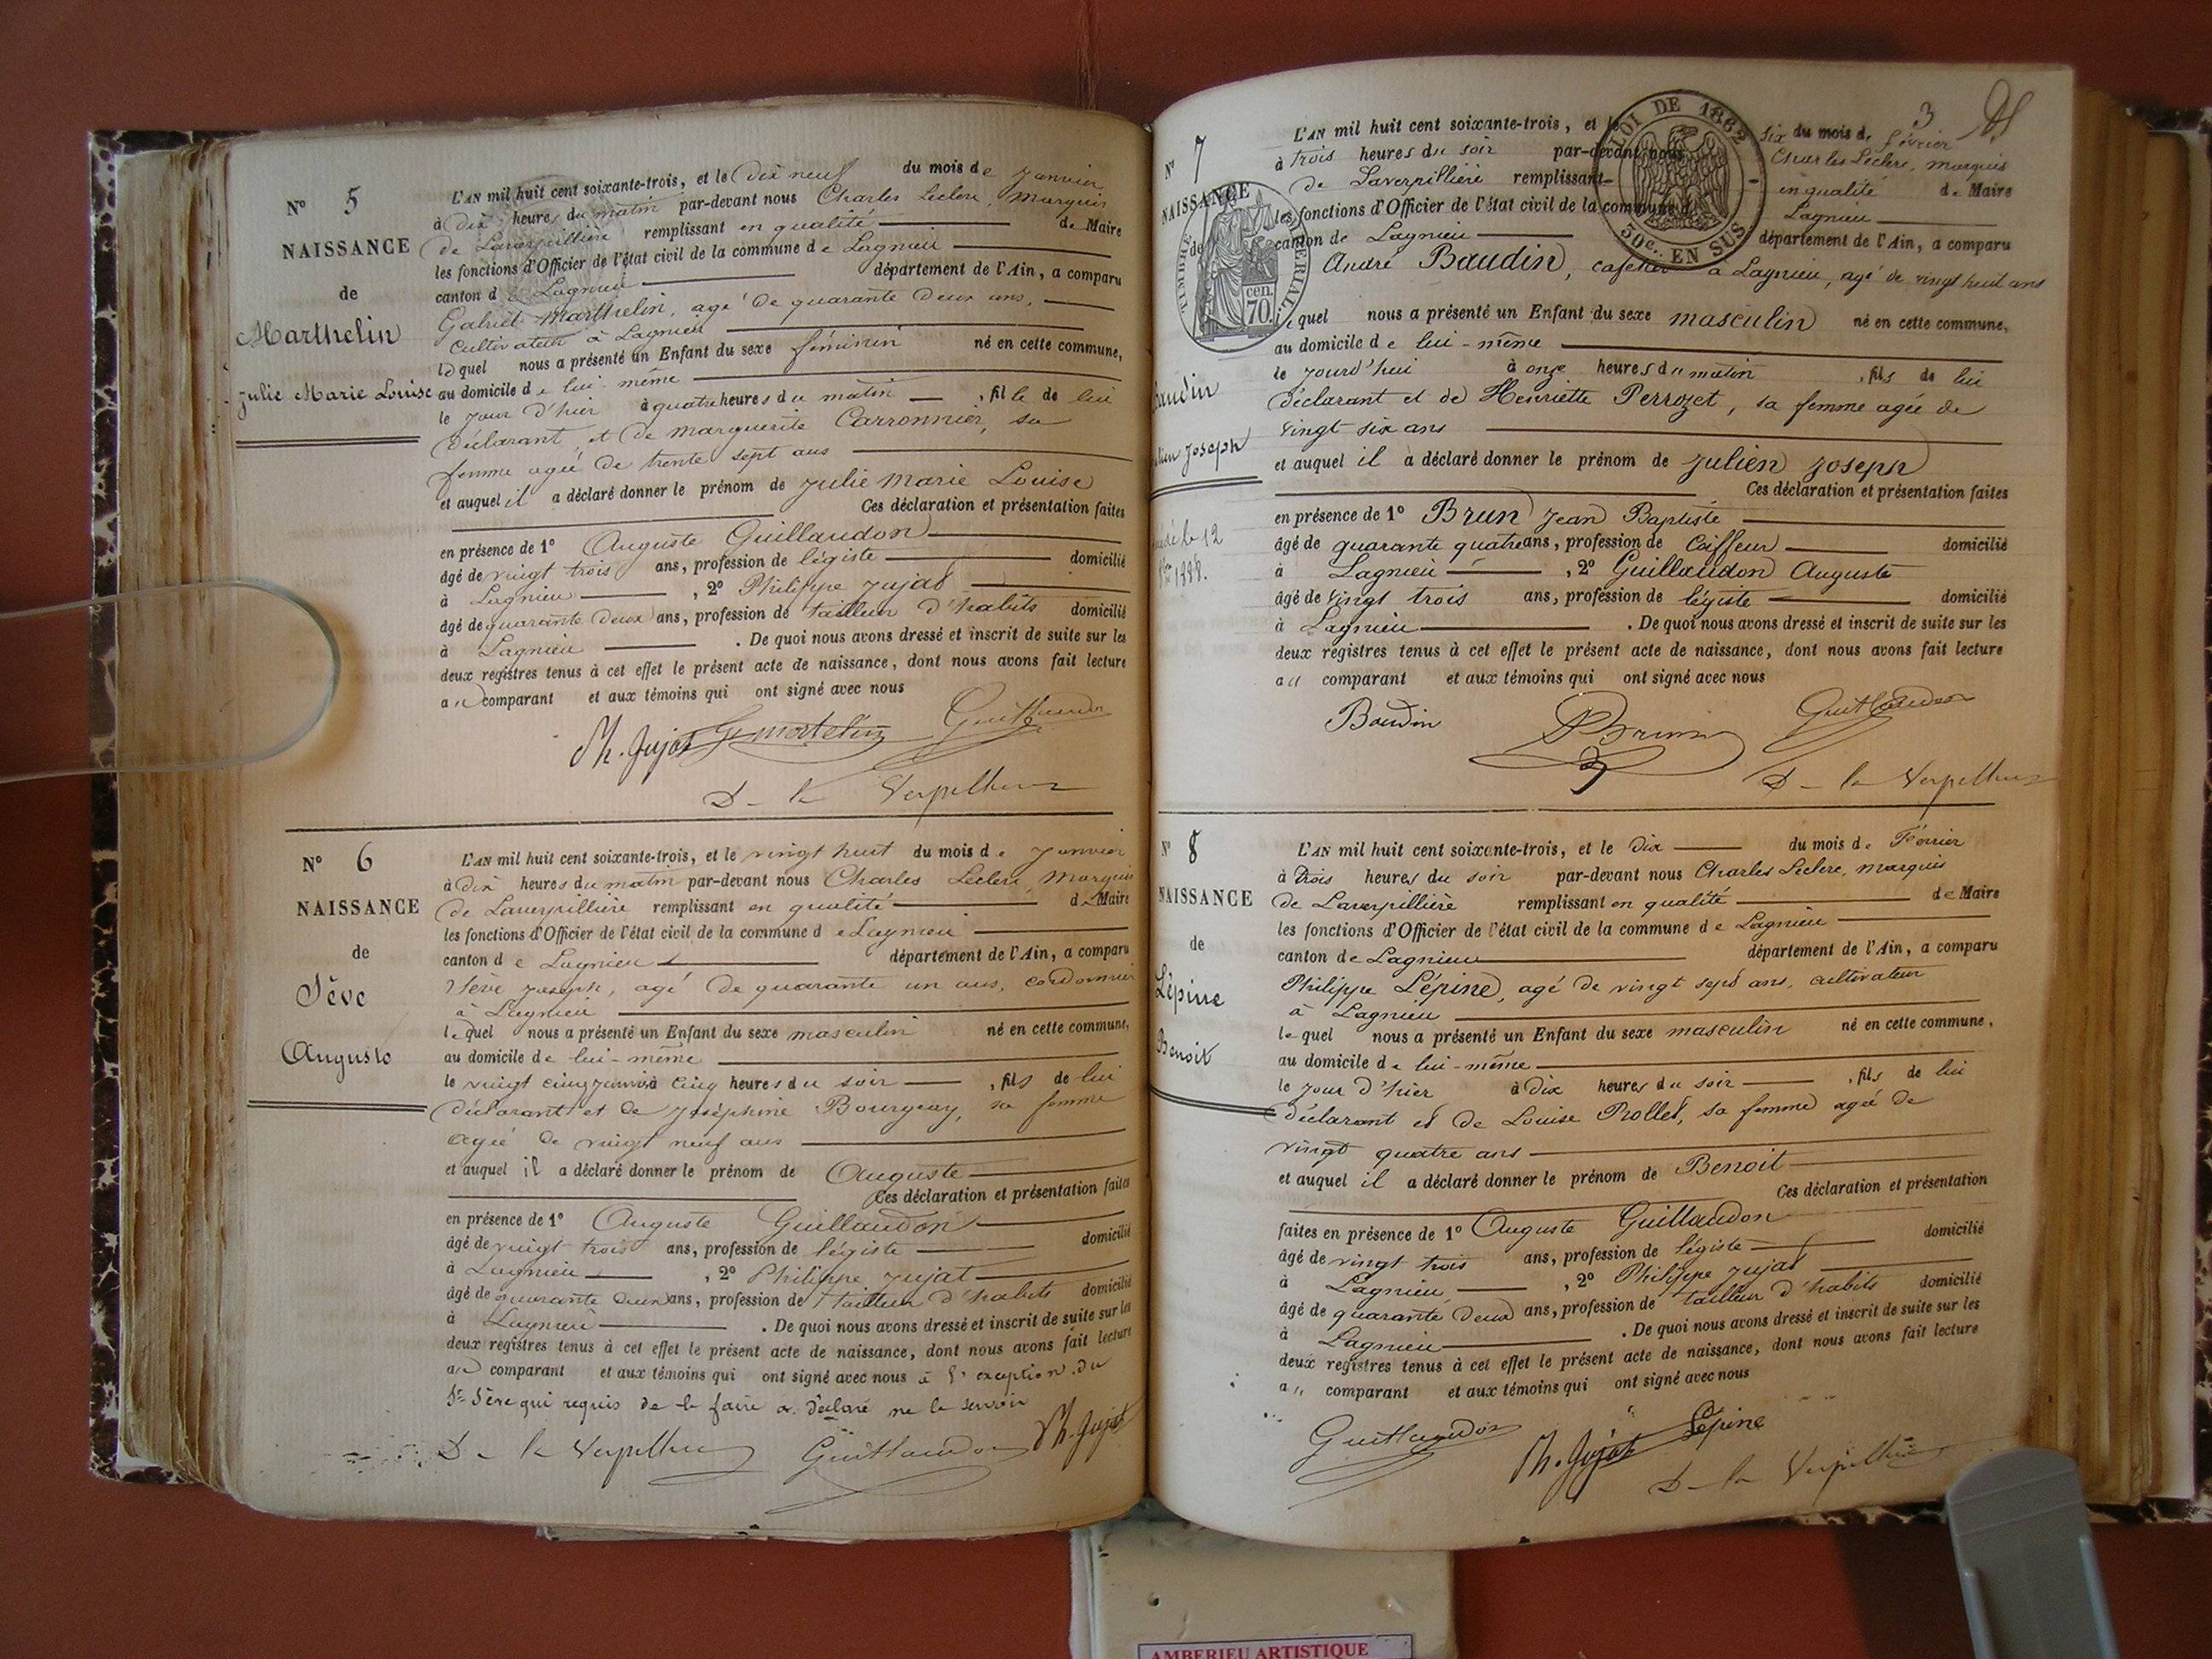 N° 5
NAISSANCE
de
Marthelin
Julie Marie Louise
L'AN mil huit cent soixante-trois, et le Dix neuf du mois de Janvier
à Dix heures du matin par-devant nous Charles Leclerc, Marquis
de Laverpillière remplissant en qualité de Maire
les fonctions d'Officier de l'état civil de la commune de Lagnieu
canton de Lagnieu département de l'Ain, a comparu
Gabriel Marthelin, agé de quarante deux ans,
Cultivateur à Lagnieu
lequel nous a présenté un Enfant du sexe féminin né en cette commune,
au domicile de lui-même
le jour d'hier à quatre heures du matin, fille de lui
déclarant, et de marguerite Carronnier, sa
femme agée de trente sept ans
et auquel il a déclaré donner le prénom de Julie Marie Louise
Ces déclaration et présentation faites
en présence de 1° Auguste Guillaudon
âgé de vingt trois ans, profession de légiste domicilié
à Lagnieu, 2° Philippe Jujat
âgé de quarante deux ans, profession de tailleur d'habits domicilié
à Lagnieu. De quoi nous avons dressé et inscrit de suite sur les
deux registres tenus à cet effet le présent acte de naissance, dont nous avons fait lecture
au comparant et aux témoins qui ont signé avec nous
Ph. Jujat G martelin Guillaudon
D - la Verpilliere
N° 6
NAISSANCE
de
Sève
Auguste
L'AN mil huit cent soixante-trois, et le vingt huit du mois de Janvier
à Dix heures du matin par-devant nous Charles Leclerc, Marquis
de Laverpillière remplissant en qualité de Maire
les fonctions d'Officier de l'état civil de la commune de Lagnieu
canton de Lagnieu département de l'Ain, a comparu
Sève Joseph, agé de quarante un ans, cordonnier
à Lagnieu
lequel nous a présenté un Enfant du sexe masculin né en cette commune,
au domicile de lui-même
le vingt cinq janvier à cinq heures du soir, fils de lui
déclarant et de Joséphine Bourgeay, sa femme
agée de vingt neuf ans
et auquel il a déclaré donner le prénom de Auguste
Ces déclaration et présentation faites
en présence de 1° Auguste Guillaudon
âgé de vingt trois ans, profession de légiste domicilié
à Lagnieu, 2° Philippe Jujat
âgé de quarante deux ans, profession de tailleur d'habits domicilié
à Lagnieu. De quoi nous avons dressé et inscrit de suite sur les
deux registres tenus à cet effet le présent acte de naissance, dont nous avons fait lecture
au comparant et aux témoins qui ont signé avec nous à l'exception du
Sr Sève qui requis de le faire a déclaré ne le savoir
D - la Verpilliere Guillaudon Ph. Jujat
3
N° 7
NAISSANCE
de
Baudin
Julien Joseph
le 12
1888.
LOI DE 1862
50c. EN SUS
TIMBRE IMPERIAL
70. cen.
L'AN mil huit cent soixante-trois, et le six du mois de février
à trois heures du soir par-devant nous Charles Leclerc, marquis
de Laverpillière remplissant en qualité de Maire
les fonctions d'Officier de l'état civil de la commune de Lagnieu
canton de Lagnieu département de l'Ain, a comparu
André Baudin, cafetier à Lagnieu, agé de vingt huit ans
lequel nous a présenté un Enfant du sexe masculin né en cette commune,
au domicile de lui-même
le jourd'hui à onze heures du matin, fils de lui
déclarant et de Henriette Perrozet, sa femme agée de
vingt six ans
et auquel il a déclaré donner le prénom de Julien Joseph
Ces déclaration et présentation faites
en présence de 1° Brun Jean Baptiste
âgé de quarante quatre ans, profession de Coiffeur domicilié
à Lagnieu, 2° Guillaudon Auguste
âgé de vingt trois ans, profession de légiste domicilié
à Lagnieu. De quoi nous avons dressé et inscrit de suite sur les
deux registres tenus à cet effet le présent acte de naissance, dont nous avons fait lecture
au comparant et aux témoins qui ont signé avec nous
Baudin Brun Guillaudon
D - la Verpilliere
N° 8
NAISSANCE
de
Lépine
Benoit
L'AN mil huit cent soixante-trois, et le Dix du mois de Février
à trois heures du soir par-devant nous Charles Leclerc, marquis
de Laverpillière remplissant en qualité de Maire
les fonctions d'Officier de l'état civil de la commune de Lagnieu
canton de Lagnieu département de l'Ain, a comparu
Philippe Lépine, agé de vingt sept ans, cultivateur
à Lagnieu
lequel nous a présenté un Enfant du sexe masculin né en cette commune,
au domicile de lui-même
le jour d'hier à dix heures du soir, fils de lui
déclarant et de Louise Rollet, sa femme agée de
vingt quatre ans
et auquel il a déclaré donner le prénom de Benoit
Ces déclaration et présentation
faites en présence de 1° Auguste Guillaudon
âgé de vingt trois ans, profession de légiste domicilié
à Lagnieu, 2° Philippe Jujat
âgé de quarante deux ans, profession de tailleur d'habits domicilié
à Lagnieu. De quoi nous avons dressé et inscrit de suite sur les
deux registres tenus à cet effet le présent acte de naissance, dont nous avons fait lecture
au comparant et aux témoins qui ont signé avec nous
Guillaudon Ph. Jujat Lépine
D - la Verpilliere
AMBERIEU ARTISTIQUE